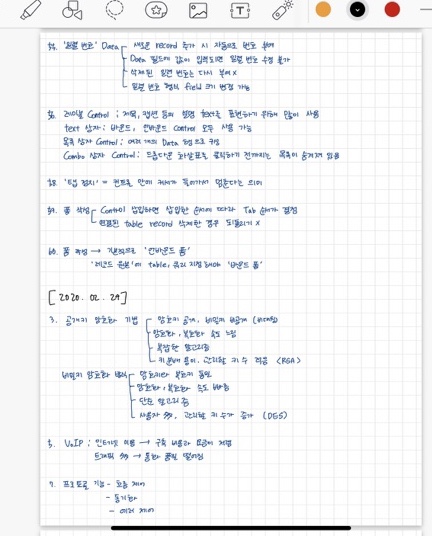 54. '일련 번호' Data ┌ 새로운 record 추가 시 자동으로 번호 부여
Data 필드에 값이 입력되면 일련 번호 수정 불가
삭제된 일련 번호는 다시 부여 x
일련 번호 형식의 field 크기 변경 가능
56. 레이블 Control ; 제목, 캡션 등의 설명 text를 표현하기 위해 많이 사용
text 상자 ; 바운드, 언바운드 control 모두 사용 가능
목록 상자 Control ; 여러 개의 Data 목록으로 구성
Combo 상자 Control ; 드롭다운 화살표를 클릭하기 전까지는 목록이 숨겨져 있음
58. '탭 정지' = 컨트롤 안에 커서가 들어가서 멈춘다는 의미
59. 폼 작성 Control 삽입하면 삽입한 순서에 따라 Tab 순서가 결정
연결된 table record 삭제한 경우 되돌리기 x
60. 폼 작성 → 기본적으로 '언바운드 폼'
'레코드 원본'에 table, 쿼리 지정해야 '바운드 폼'
[ 2020. 02. 29 ]
3. 공개키 암호화 기법 암호키 공개, 해독키 비공개 (비대칭)
암호화, 복호화 속도 느림
복잡한 알고리즘
키 분배 용이, 관리할 키 수 적음 (RSA)
비밀키 암호화 기법 암호키와 복호키 동일
암호화, 복호화 속도 빠름
단순 알고리즘
사용자 多, 관리할 키 수가 증가 (DES)
5. VoIP ; 인터넷 이용 → 구축 비용과 요금이 저렴
트래픽 多 → 통화 품질 떨어짐
7. 프로토콜 기능 - 흐름 제어
- 동기화
- 에러 제어